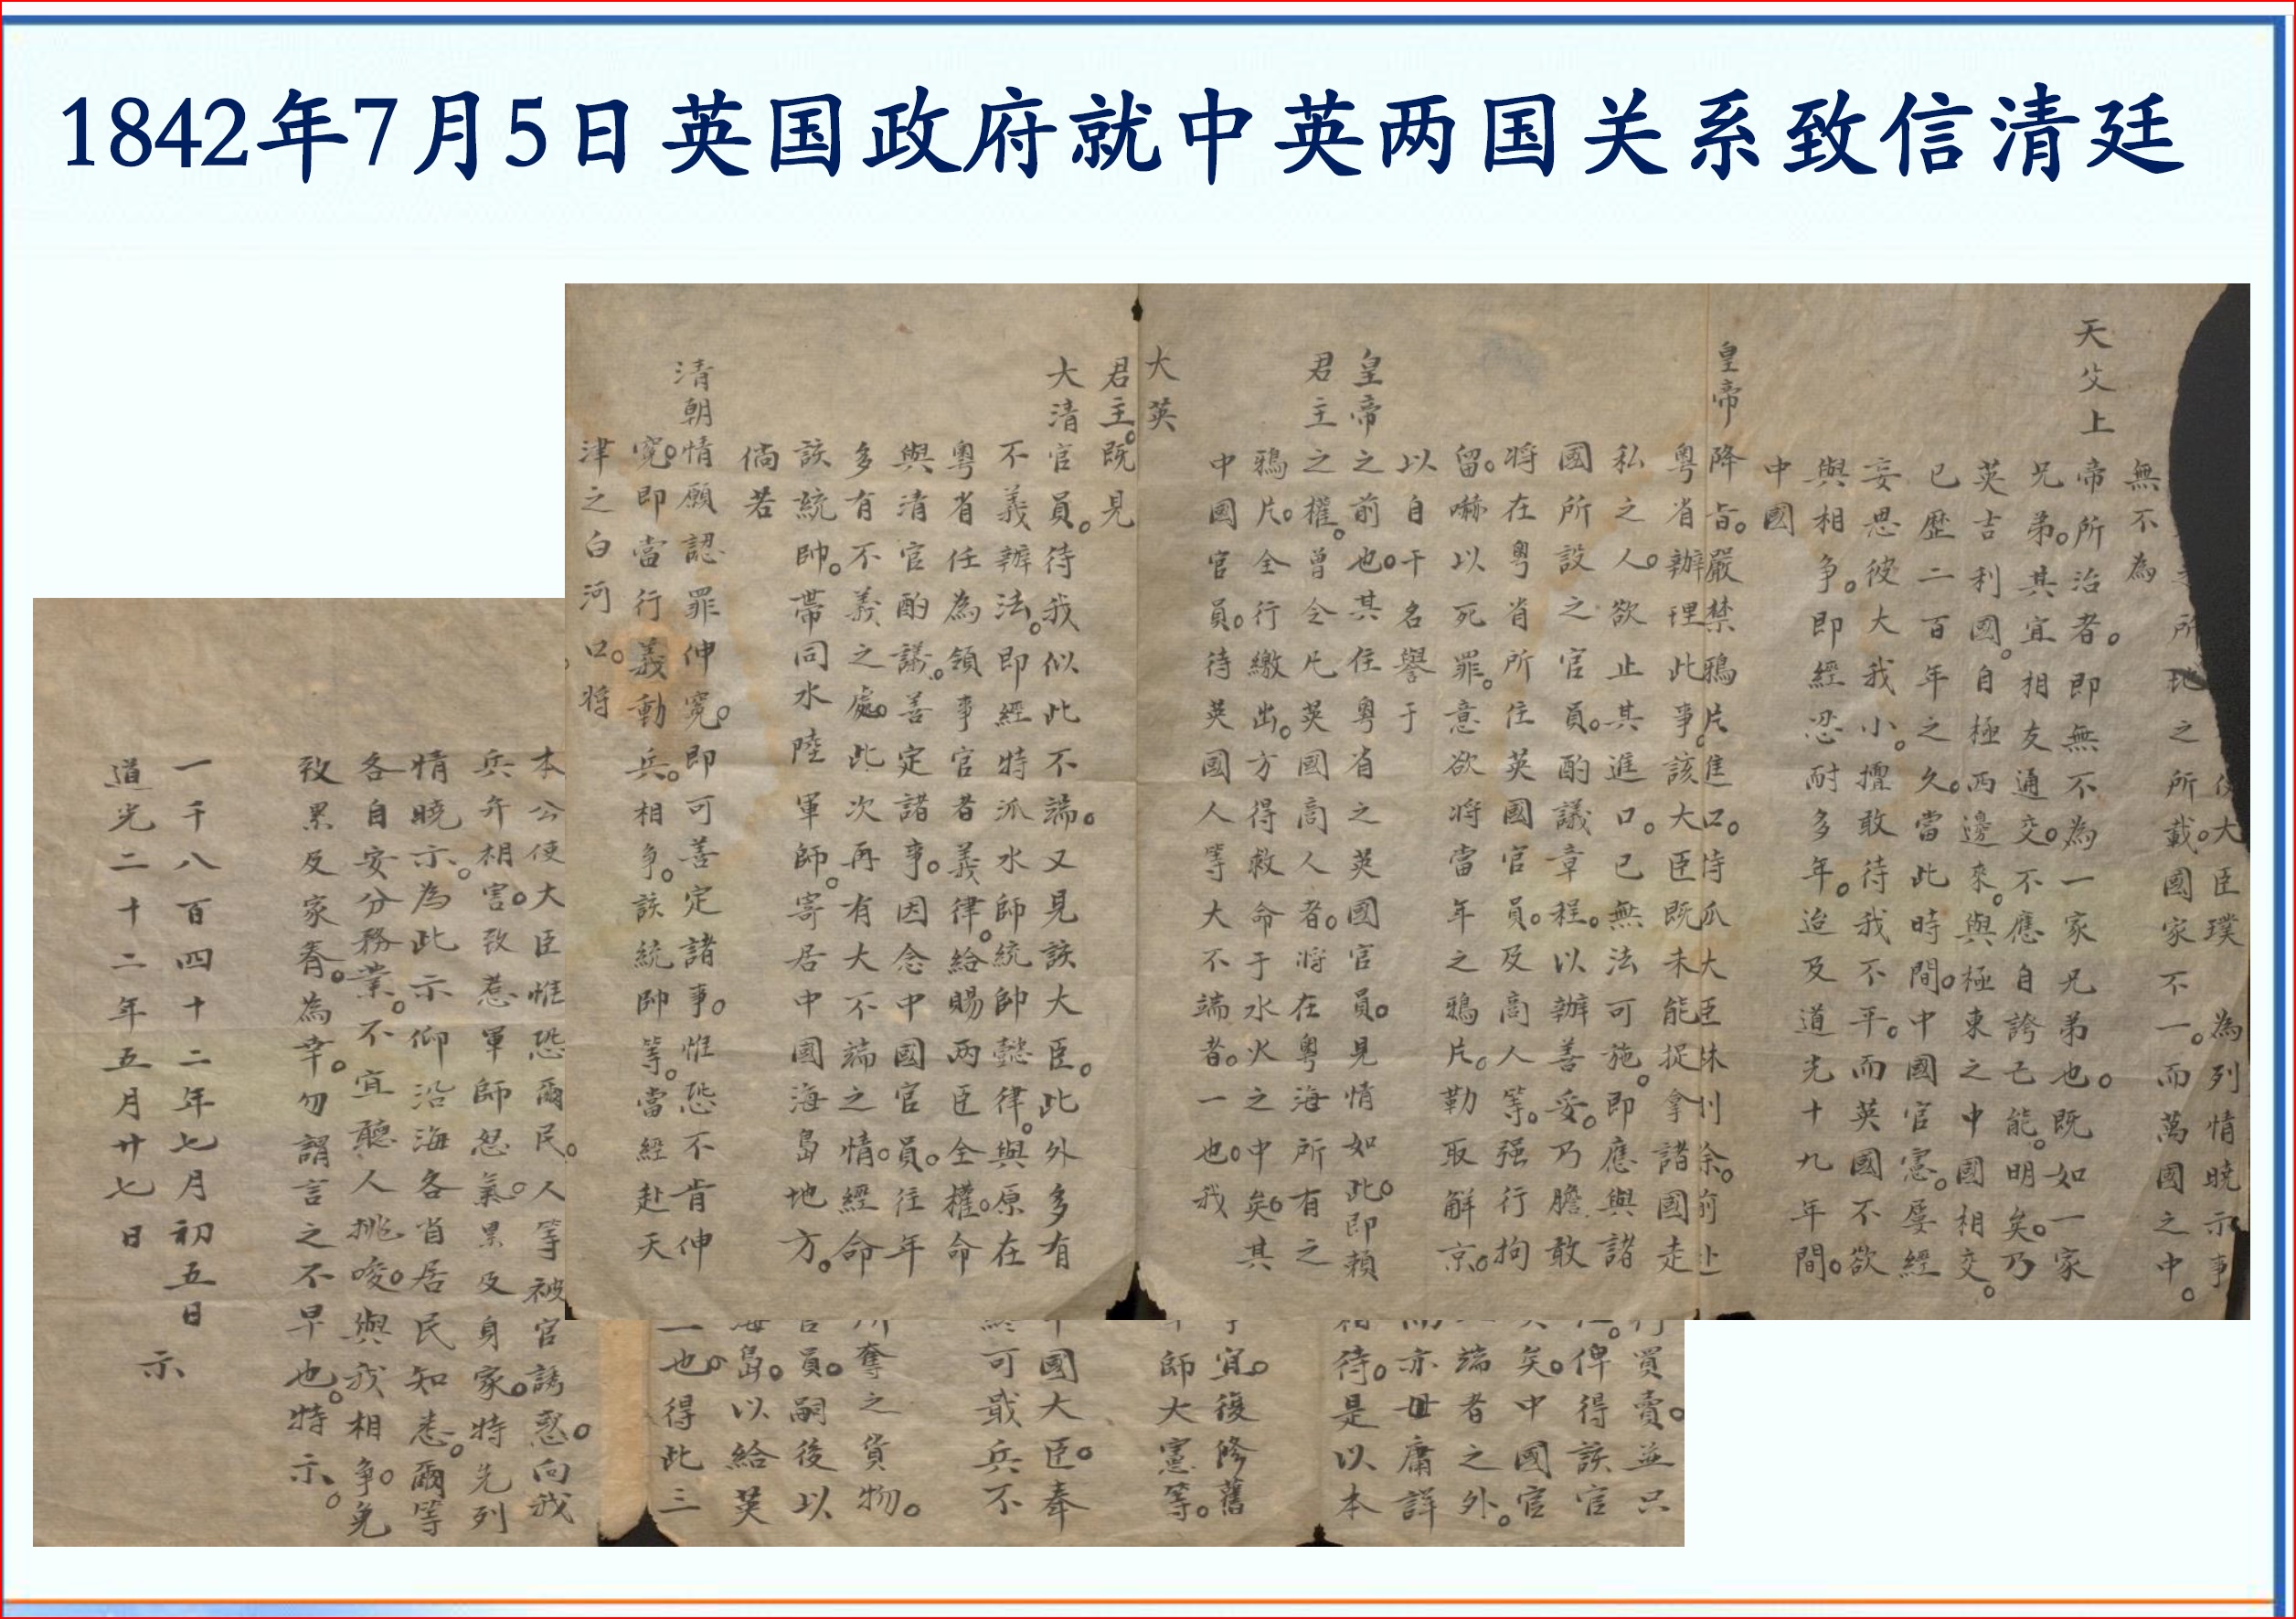 1842年7月5日英国政府就中英两国关系致信清廷
使大臣璞 為列情曉示事
所地之所載。國家不一。而萬國之中。
無不為
天父上帝所治者。即無不為一家兄弟也。既如一家
兄弟。其宜相友通交。不應自誇己能。明矣。乃
英吉利國。自極西邊來。與極東之中國相交。
已歷二百年之久。當此時間。中國官憲。屡經
妄思彼大我小。擅敢待我不平。而英國不欲
與相争。即經忍耐多年。迨及道光十九年間。
中國
皇帝降旨。嚴禁鴉片進口。特派大臣林則徐。前赴
粵省辦理此事。該大臣既未能捉拿諸國走
私之人。欲止其進口。已無法可施。即應與諸
國所設之官員。酌議章程。以辦善妥。乃膽敢
將在粵省所住英國官員。及商人等。强行拘
留。嚇以死罪。意欲將當年之鴉片。勒取解京。
以自干名譽于
皇帝之前也。其住粵省之英國官員。見情如此。即頼
君主之權。曾令凡英國商人者。將在粵海所有之
鴉片。全行繳出。方得救命于水火之中矣。其
中國官員。待英國人等大不端者。一也。我
大英
君主。既見
大清官員。待我似此不端。又見該大臣。此外多有
不義辦法。即經特派水師統帥懿律。與原在
粵省任為領事官者義律。給賜两臣全權。命
與清官酌議。善定諸事。因念中國官員。往年
多有不義之處。此次再有大不端之情。經命
該統帥。帶同水陸軍師。寄居中國海島地方。
倘若
清朝情願認罪伸寃。即可善定諸事。惟恐不肯伸
寃。即當行義動兵。相争。該統帥等。當經赴天
津之白河口。將
行買賣。並只
俾得該官
矣。中國官
端者之外。
亦毋庸詳
相待。是以本
宜。復修舊
師大憲等。
國大臣。奉
可戢兵不
奪之貨物。
官員。嗣後以
海島。以給英
一也。得此三
本公使大臣惟恐爾民。人等被官誘惑。向我
兵弁相害。致惹軍師怒氣。累及身家。特先列
情曉示。為此示仰沿海各省居民知悉。爾等
各自安分務業。不宜聽人挑唆。與我相争。免
致累及家眷。為幸。勿謂言之不早也。特示。
一千八百四十二年七月初五日
道光二十二年五月廿七日
示